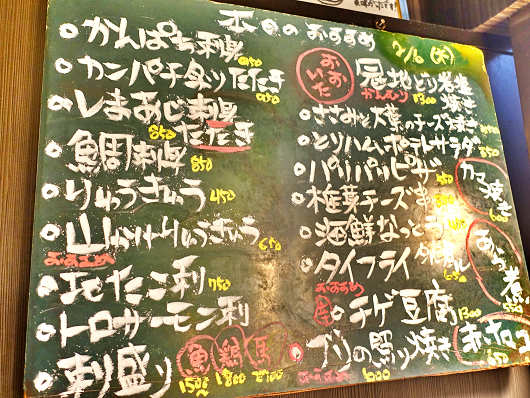 本日のおすすめ 2/6(木)
かんぱち刺身 850
カンパチ炙りたたき 850
しまあじ刺身 850
たたき
鯛刺身 850
りゅうきゅう 450
山かけりゅうきゅう 650
おすすめ
地たこ刺 750
トロサーモン刺
刺盛り 魚 鶏 馬
1500〜 1800 2700
おおいた
冠地どり岩塩焼き
かんむり 1300
ささみと大葉のチーズ焼き
とりハムポテトサラダ 550
パリパリピザ
椎茸チーズ
海鮮なっとう
タイフライ 650
おすすめ
チゲ豆腐 1300
ブリの照り焼き
おすすめ 1000
カマ焼き 600
あら煮 550
赤ネコ 650